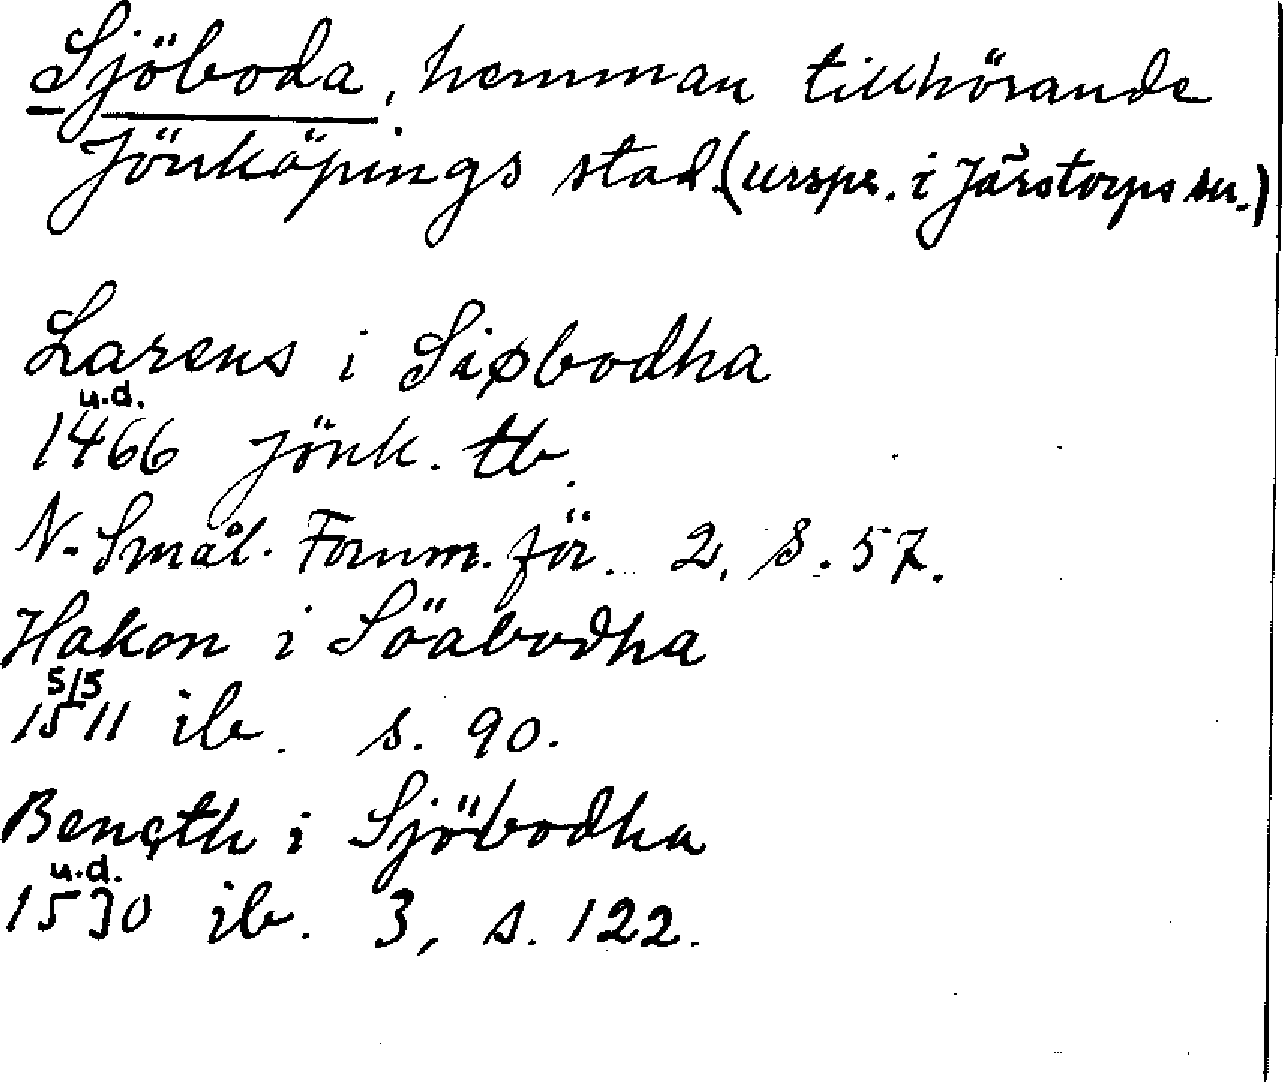 Sjöboda, hemman tillhörande
Jönköpings stad. (urspr. i Järstorps sn.)
Larens i Siøbodha
u.d.
1466 Jönk. tb.
N. Smål. Fornm. för. 2, s. 57.
Hakon i Söabodha
5/5
1511 ib. s. 90.
Bength i Sjöbodha
u.d.
1530 ib. 3, s. 122.